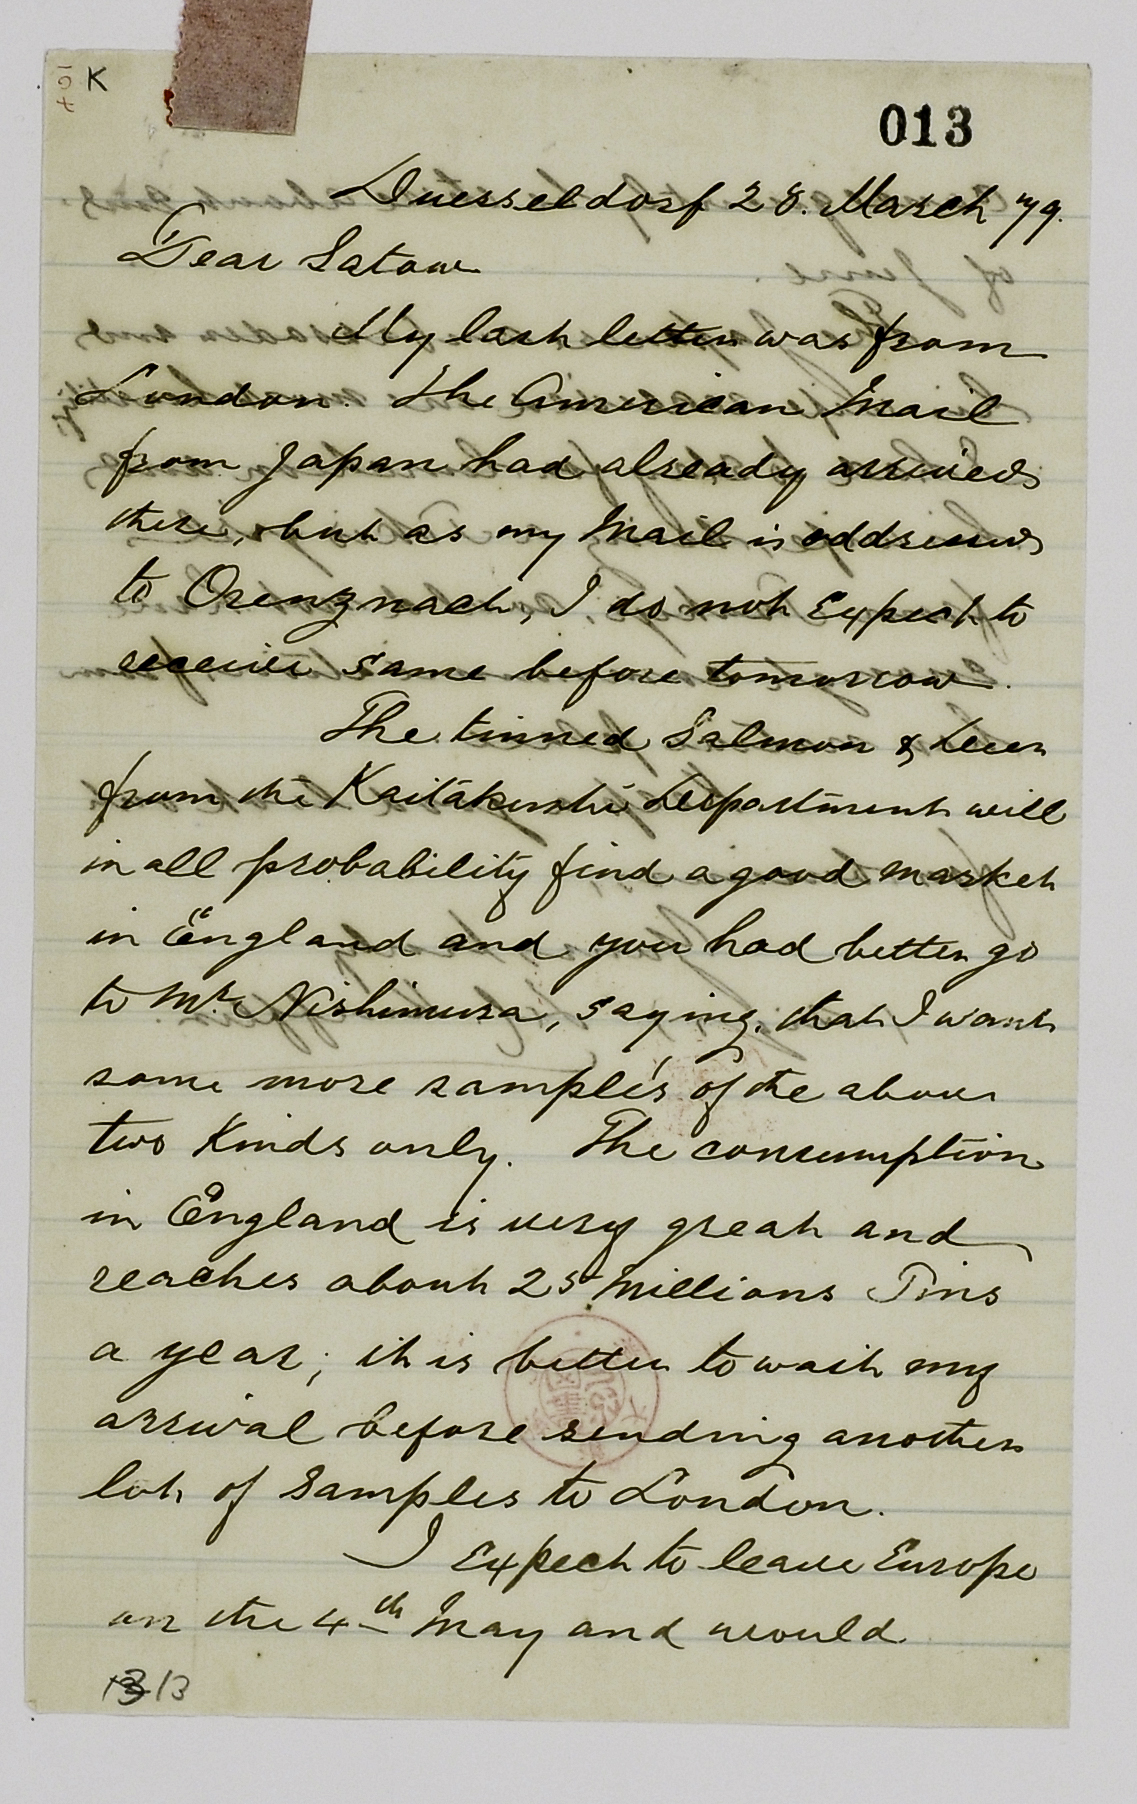 K
013
Duesseldorf 28. March 79.
Dear Satow
My last letter was from
London. The American Mail
from Japan had already arrived
there, but as my Mail is addressed
to Creuznach, I do not expect to
receive same before tomorrow.
The tinned Salmon & Deer
from the Kaitakushi Department will
in all probability find a good market
in England and you had better go
to Mr. Nishimura, saying, that I want
some more samples of the above
two kinds only. The consumption
in England is very great and
reaches about 25 Millions Tins
a year; it is better to wait my
arrival before sending another
lot of Samples to London.
I expect to leave Europe
on the 4th May and would
13